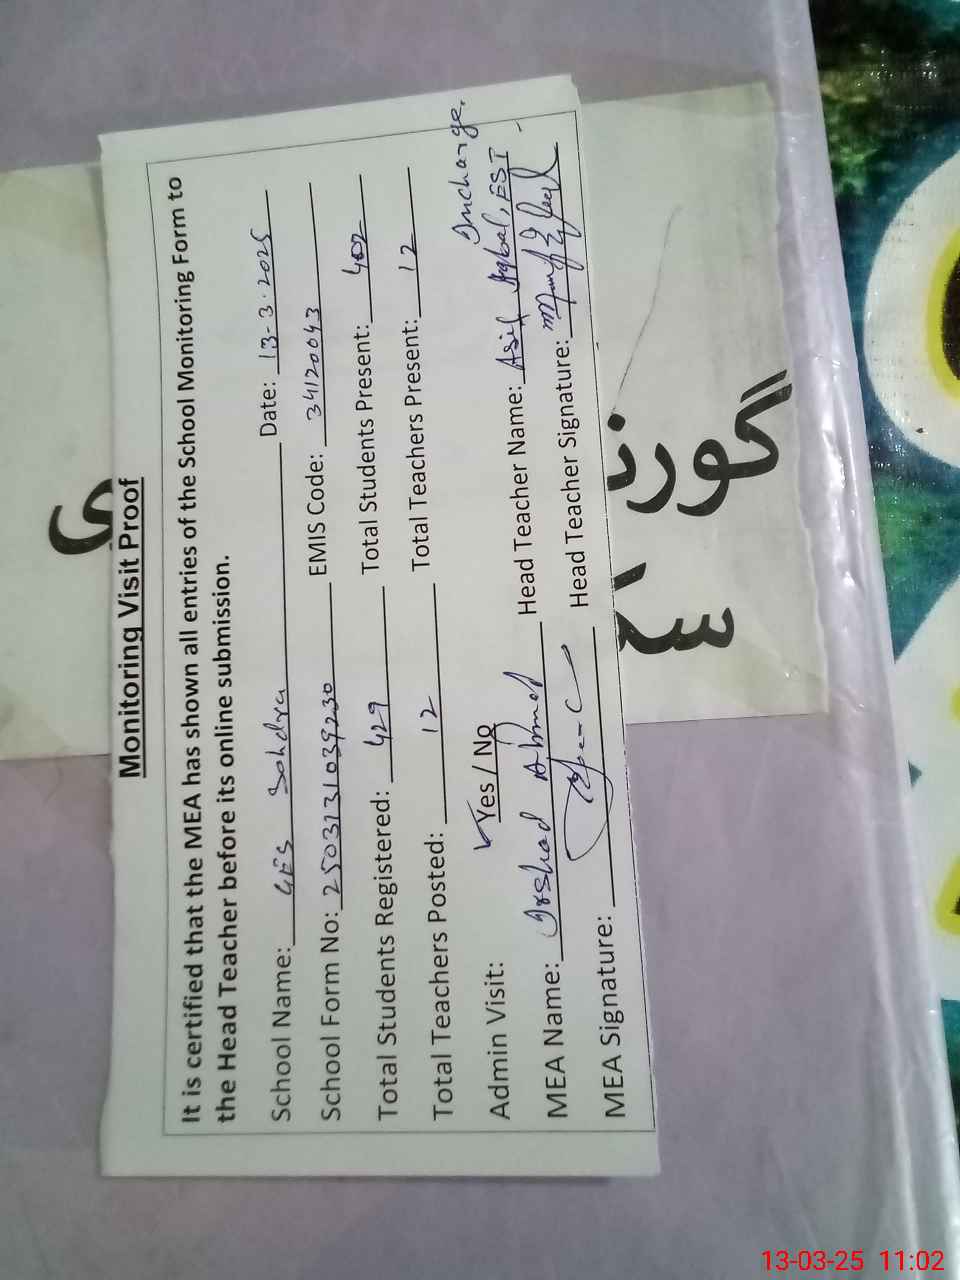 Monitoring Visit Proof
It is certified that the MEA has shown all entries of the School Monitoring Form to
the Head Teacher before its online submission.
School Name: GES Sohdra Date: 13-3-2025
School Form No: 2503131039230 EMIS Code: 34120043
Total Students Registered: 429 Total Students Present: 402
Total Teachers Posted: 12 Total Teachers Present: 12
Incharge,
Admin Visit: ✓Yes / No
MEA Name: Irshad Ahmed Head Teacher Name: Asif Iqbal, EST
MEA Signature: Head Teacher Signature:
ی
گورن
سک
13-03-25 11:02